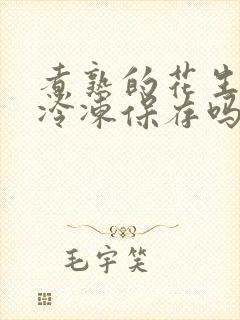 煮熟的花生
冷冻保存吗
毛宇笑